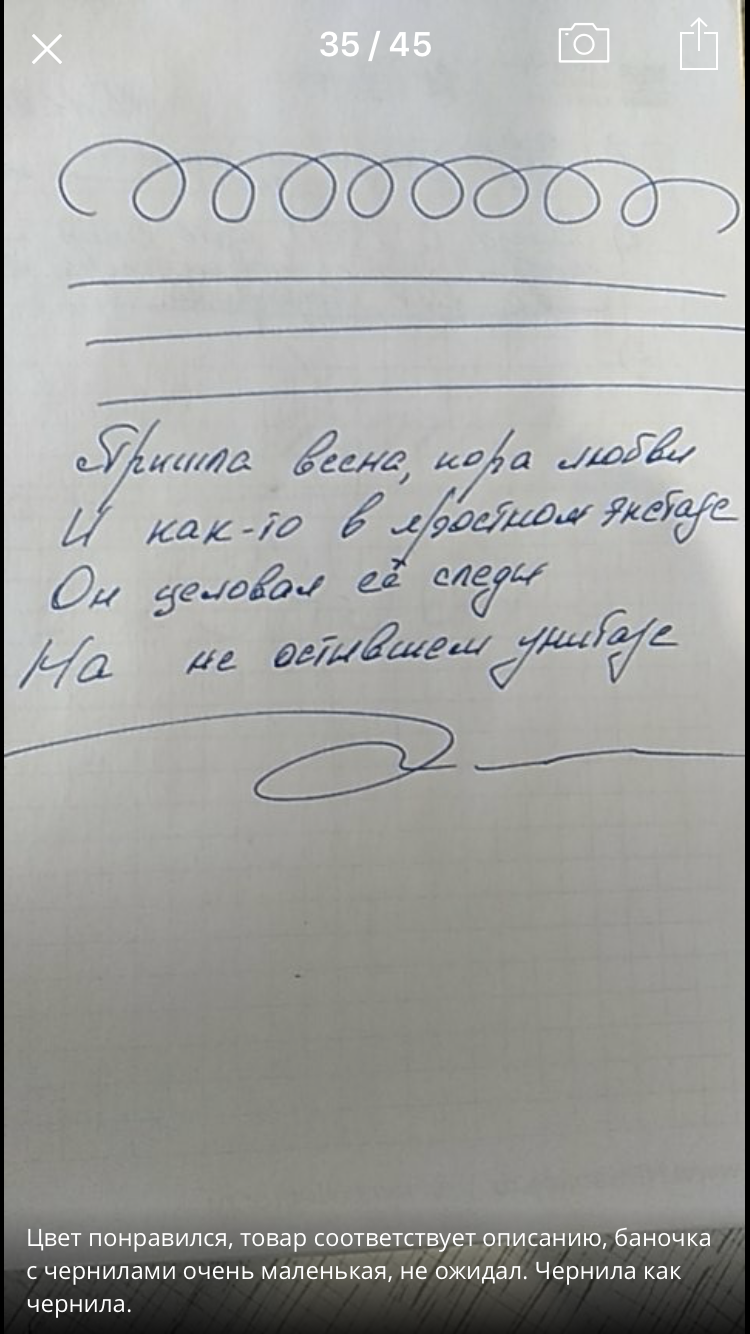 35 / 45
Пришла весна, пора любви
И как-то в яростном экстазе
Он целовал её следы
На не остывшем унитазе
Цвет понравился, товар соответствует описанию, баночка
с чернилами очень маленькая, не ожидал. Чернила как
чернила.